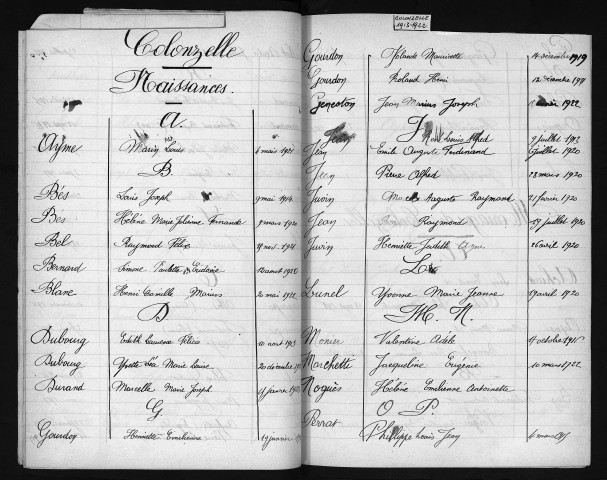 COLONZELLE
1913-1922
Colonzelle
Naissances.
A.
Ayme Marin Louis 1 mars 1921
B.
Bès Louis Joseph 9 mai 1914
Bes Hélène Marie Julienne Fernande 9 mars 1920
Bel Raymond
Bernard Simone Paulette 1922
Blanc Henri Camille Marius 20 mai 1922
D
Dubourg 10 août 1913
Dubourg Yvette Marie Louise 20 décembre
Durand Marcelle Marie Joseph janvier
G
Gourdon Henriette Emilienne 19 janvier
Gourdon Yolande Mauricette 14 décembre 1919
Gourdon Roland Henri 12 décembre
Geneston Jean Marius Joseph 1922
J
Jean Louis Alfred 9 juillet 1913
Jean Emile Auguste Ferdinand juillet 1920
Jean Pierre Alfred 28 mars 1920
Juvin Marcel Auguste Raymond 21 février 1920
Jean Raymond juillet 1920
Juvin Henriette 26 avril 1920
L
Lunel Yvonne Marie Jeanne 19 avril 1920
M. N.
Monier Valentine Adèle octobre
Marchetti Jacqueline Eugénie 10 mars 1922
Noguès Hélène Emilienne Antoinette
O P
Perrat Philippe Louis Jean mars